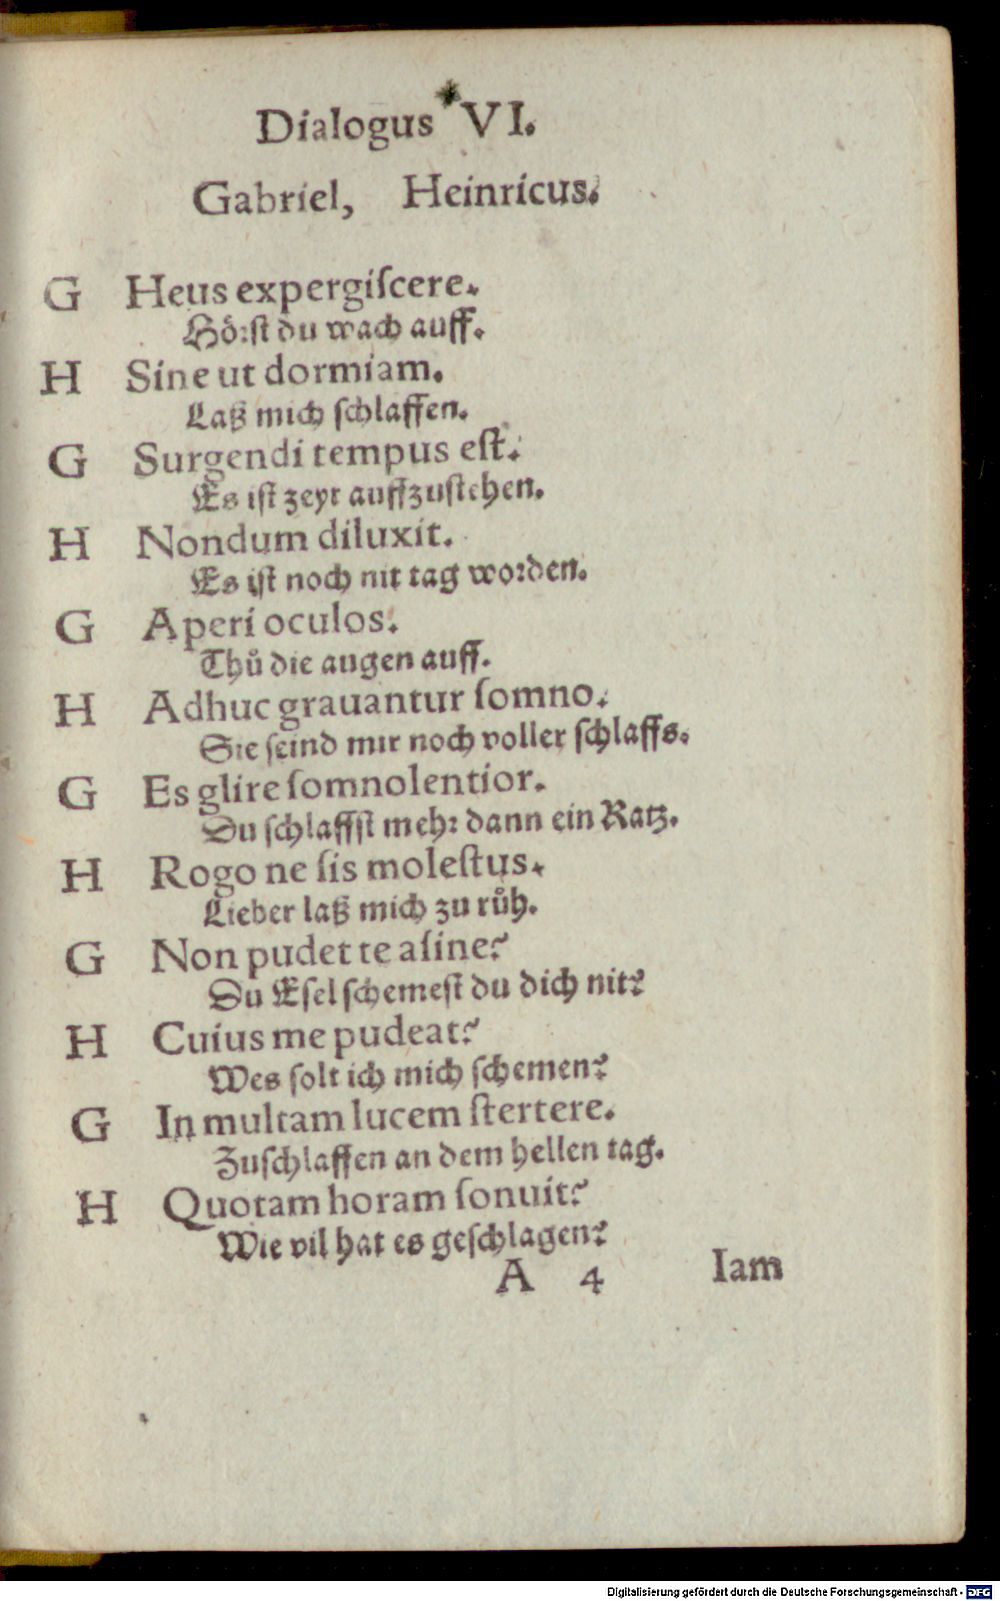 Dialogus VI.
Gabriel, Heinricus.
G Heus expergiſcere.
Hoͤrſt du wach auff.
H Sine ut dormiam.
Laß mich ſchlaffen.
G Surgendi tempus eſt.
Es iſt zeyt auffzuſtehen.
H Nondum diluxit.
Es iſt noch nit tag worden.
G Aperi oculos.
Thuͦ die augen auff.
H Adhuc grauantur ſomno.
Sie ſeind mir noch voller ſchlaffs.
G Es glire ſomnolentior.
Du ſchlaffſt mehr dann ein Ratz.
H Rogo ne ſis moleſtus.
Lieber laß mich zu ruͦh.
G Non pudet te aſine?
Du Eſel ſchemeſt du dich nit?
H Cuius me pudeat?
Wes ſolt ich mich ſchemen?
G In multam lucem ſtertere.
Zuſchlaffen an dem hellen tag.
H Quotam horam ſonuit?
Wie vil hat es geſchlagen?
A 4 Iam
Digitalisierung gefördert durch die Deutsche Forschungsgemeinschaft - DFG